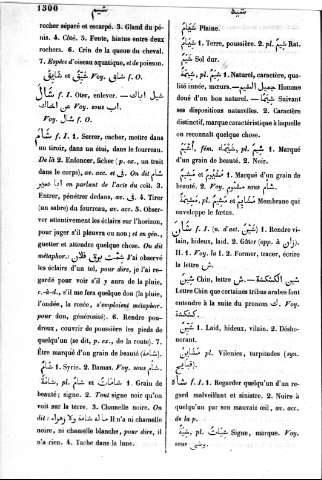 1300
شيم
شيط
rocher séparé et escarpé. 3. Gland du pé-
nis. 4. Côté. 5. Fente, hiatus entre deux
rochers. 6. Crin de la queue du cheval.
7. Espèce d'oiseau aquatique, et de poisson.
f. O. شاق .Voy شيق et شايق
f. I. Oter, enlever. شال
Voy. sous
Voy. شال f. O.
شام f. I. 1. Serrer, mettre
un tiroir, dans un étui, dans le fourreau.
De là 2. Enfoncer, ficher (p. ex., un trait
dans le corps), av. acc. et في. On dit شام
en parlant de l'acte du coït. 3.
Entrer, pénétrer dedans, av. في. 4. Tirer
(un sabre) du fourreau, av. acc. 5. Obser-
ver attentivement les éclairs sur l'horizon,
pour juger s'il pleuvra ou non; et en gén.,
guetter et attendre quelque chose. On dit
métaphor.: شمت برق فلان J'ai observé
les éclairs d'un tel, pour dire, je l'ai re-
gardé pour voir s'il y aura de la pluie,
c.-à-d., s'il me fera quelque don (la pluie,
l'ondée, la rosée, s'emploient métaphor.
pour don, générosité). 6. Rendre pou-
dreux, couvrir de poussière les pieds de
quelqu'un (se dit, p. ex., de la route). 7.
Être marqué d'un grain de beauté (شامة).
شام 1. Syrie. 2. Damas. Voy. sous شأم.
شامة, pl. شام et شامات 1. Grain de
beauté; signe. 2. Tout signe noir qu'on
voit sur la terre. 3. Chamelle noire. On
dit ما له شامة ولا زهراء Il n'a ni chamelle
noire, ni chamelle blanche, pour dire, il
n'a rien. 4. Tache dans la lune.
شيام Plaine.
شيام 1. Terre, poussière. 2. pl. شيم Rat.
شيم Sol dur.
شيمة, pl. شيم 1. Naturel, caractère, qua-
lité innée, mœurs. — جميل الشيم Homme
doué d'un bon naturel. — Suivant
ses dispositions naturelles. 2. Caractère
distinctif, marque caractéristique à laquelle
on reconnaît quelque chose.
أشيم, fém. شيماء, pl. شيم 1. Marqué
d'un grain de beauté. 2. Noir.
مشيم et مشيوم 1. Marqué d'un grain de
beauté. 2. Voy. مشئوم sous شأم.
مشيمة, pl. مشيم et مشايم Membrane qui
enveloppe le fœtus.
شان f. I. (n. d'act. شين) 1. Rendre vi-
lain, hideux, laid. 2. Gâter (opp. à زان).
II. 1. Voy. la I. 2. Former, tracer, écrire
la lettre ش.
شين Chin, lettre ش. — شين الكشكشة
Lettre Chin que certaines tribus arabes font
entendre à la suite du pronom ك. Voy.
كشكشة.
شين 1. Laid, hideux, vilain. 2. Désho-
norant.
مشاين pl. Vilenies, turpitudes (syn.
مقابح).
شاه f. I. 1. Regarder quelqu'un d'un re-
gard malveillant et sinistre. 2. Nuire à
quelqu'un par son mauvais œil, av. acc.
de la p.
شية, pl. شيات Signe, marque. Voy.
sous وشى.